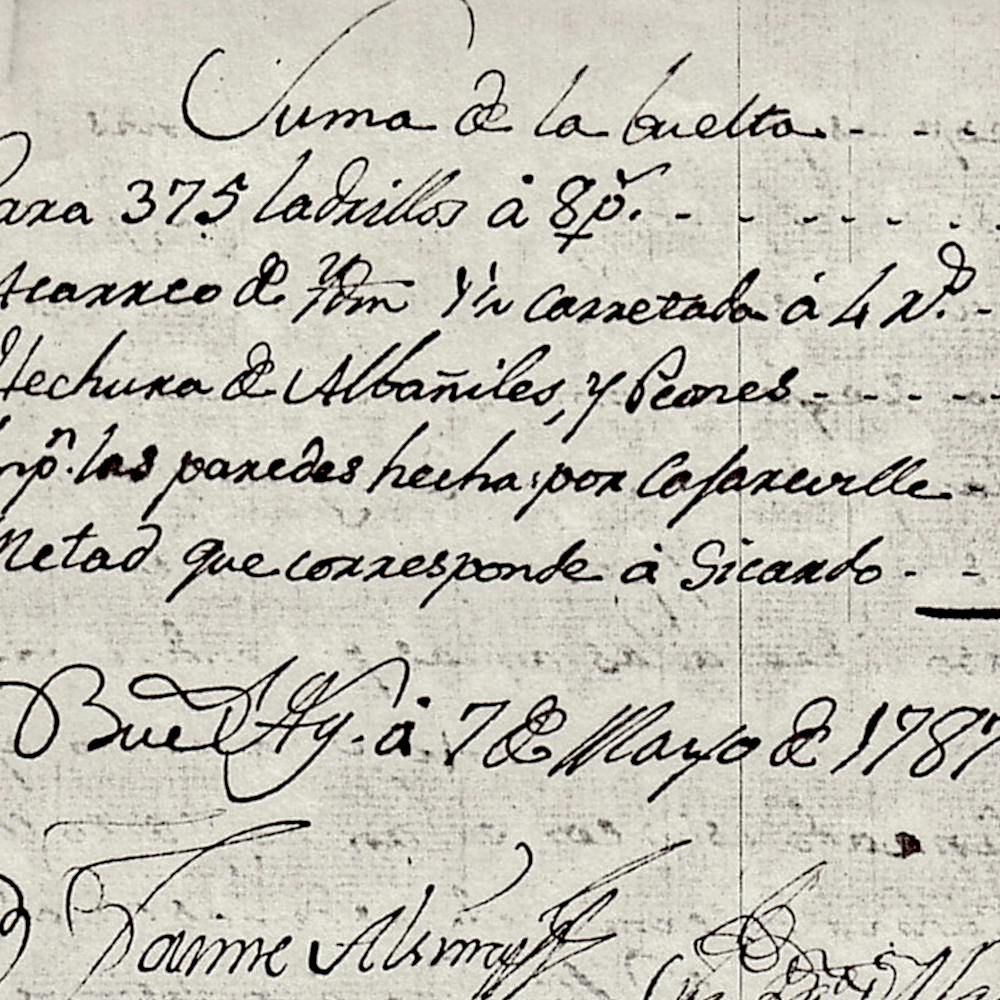 Suma de la buelta
Para 375 ladrillos á 8p.s
Acarreo de Ydm 1½ carretada á 4 r.s
Hechura de Albañiles, y Peones
las paredes hecha por
Metad que corresponde á Sicardo
Bue.s Ay.s á 7 de Mayo de 1787
Jaime